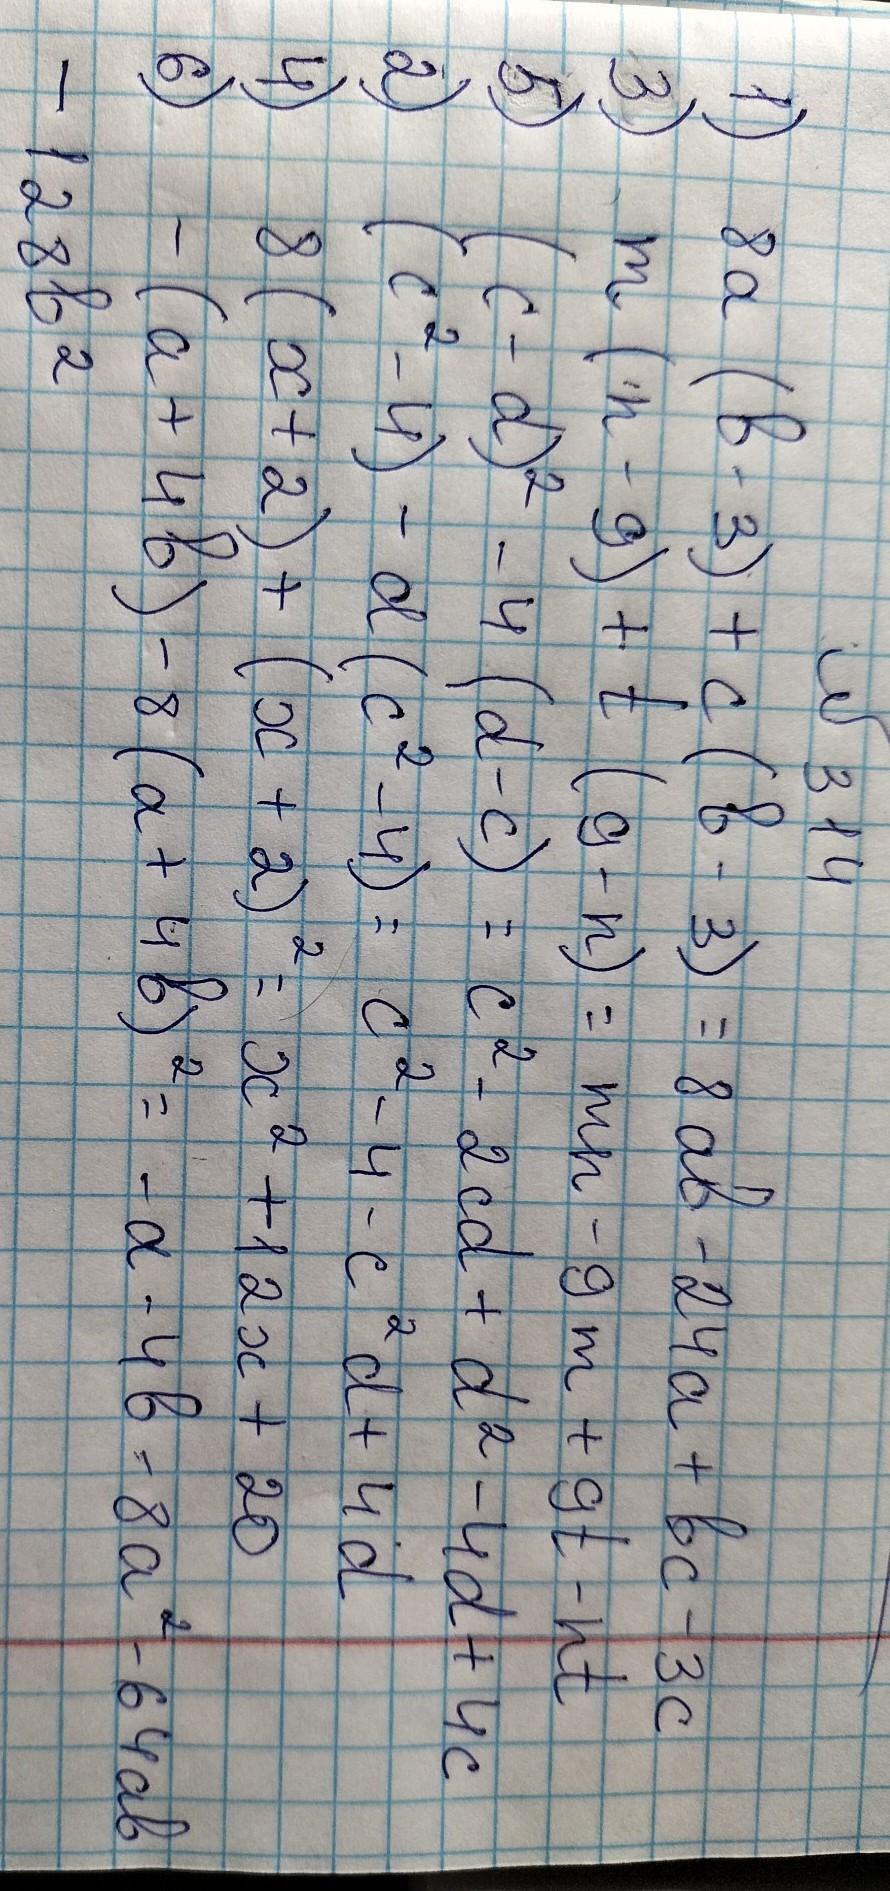 № 314
1) 8a (b - 3) + c (b - 3) = 8ab - 24a + bc - 3c
3) m (n - 9) + t (9 - n) = mn - 9m + 9t - nt
5) (c - d)² - 4 (d - c) = c² - 2cd + d² - 4d + 4c
2) (c² - 4) - d (c² - 4) = c² - 4 - c²d + 4d
4) 8 (x + 2) + (x + 2)² = x² + 12x + 20
6) - (a + 4b) - 8 (a + 4b)² = - a - 4b - 8a² - 64ab
- 128b²